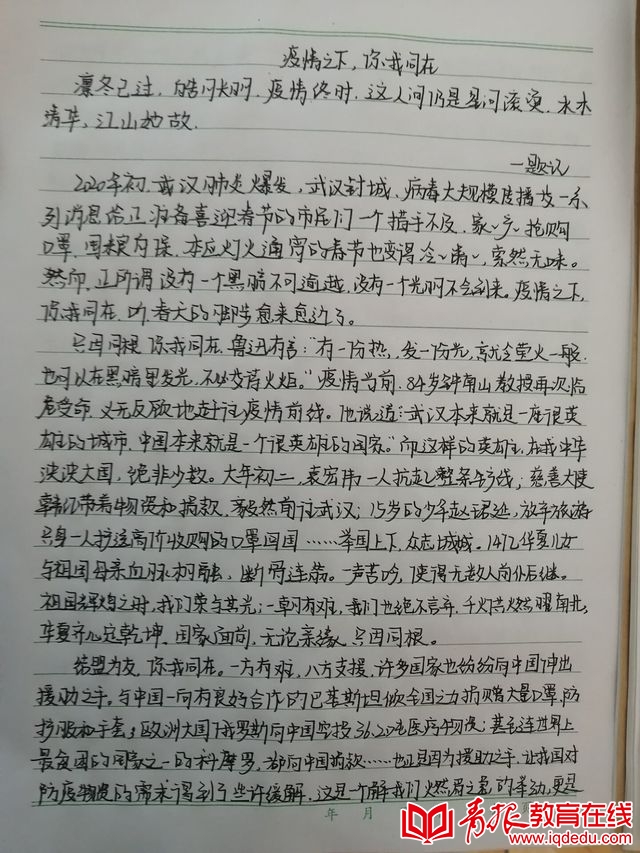 疫情之下，你我同在
凛冬已过，皓月长明，疫情终时，这人间仍是星河滚烫，水木
清华，江山如故。
—题记
2020年初，武汉肺炎爆发，武汉封城，病毒大规模传播…一系
列消息给正准备喜迎春节的市民们一个措手不及，家家户户抢购
口罩，囤粮自保，本应灯火通宵的春节也变得冷冷清清，索然无味。
然而，正所谓没有一个黑暗不可逾越，没有一个光明不会到来。疫情之下，
你我同在，听，春天的脚步愈来愈近了。
只因同根，你我同在。鲁迅有言："有一份热，发一份光，就令萤火一般，
也可以在黑暗里发光，不必等待火炬。"疫情当前，84岁钟南山教授再次临
危受命，义无反顾地赶往疫情前线。他说道："武汉本来就是一座很英
雄的城市，中国本来就是一个很英雄的国家。"而这样的英雄，在我中华
泱泱大国，绝非少数。大年初二，袁宏伟一人扛起整条生产线；慈善大使
韩红带着物资和捐款，毅然前往武汉；15岁的少年赵珺延，放弃旅游
只身一人护送高价收购的口罩回国……举国上下，众志成城。14亿华夏儿女
与祖国母亲血脉相融，断骨连筋。一声苦吟，使得无数人前仆后继。
祖国辉煌之时，我们荣与其光；一朝有难，我们也绝不言弃，千灯共燃耀南北，
华夏齐心定乾坤，国家面前，无论亲缘，只因同根。
结盟为友，你我同在。一方有难，八方支援，许多国家也纷纷向中国伸出
援助之手。与中国一向有良好合作的巴基斯坦倾全国之力捐赠大量口罩，防
护服和手套；欧洲大国下俄罗斯向中国空投36.20吨医疗物资；甚至连世界上
最贫困的国家之一的科摩罗，都向中国捐款……也正是因为援助之手，让我国对
防疫物资的需求得到了些许缓解，这是一个解我们燃眉之急的举动，更是
年 月
青报教育在线
www.iqdedu.com